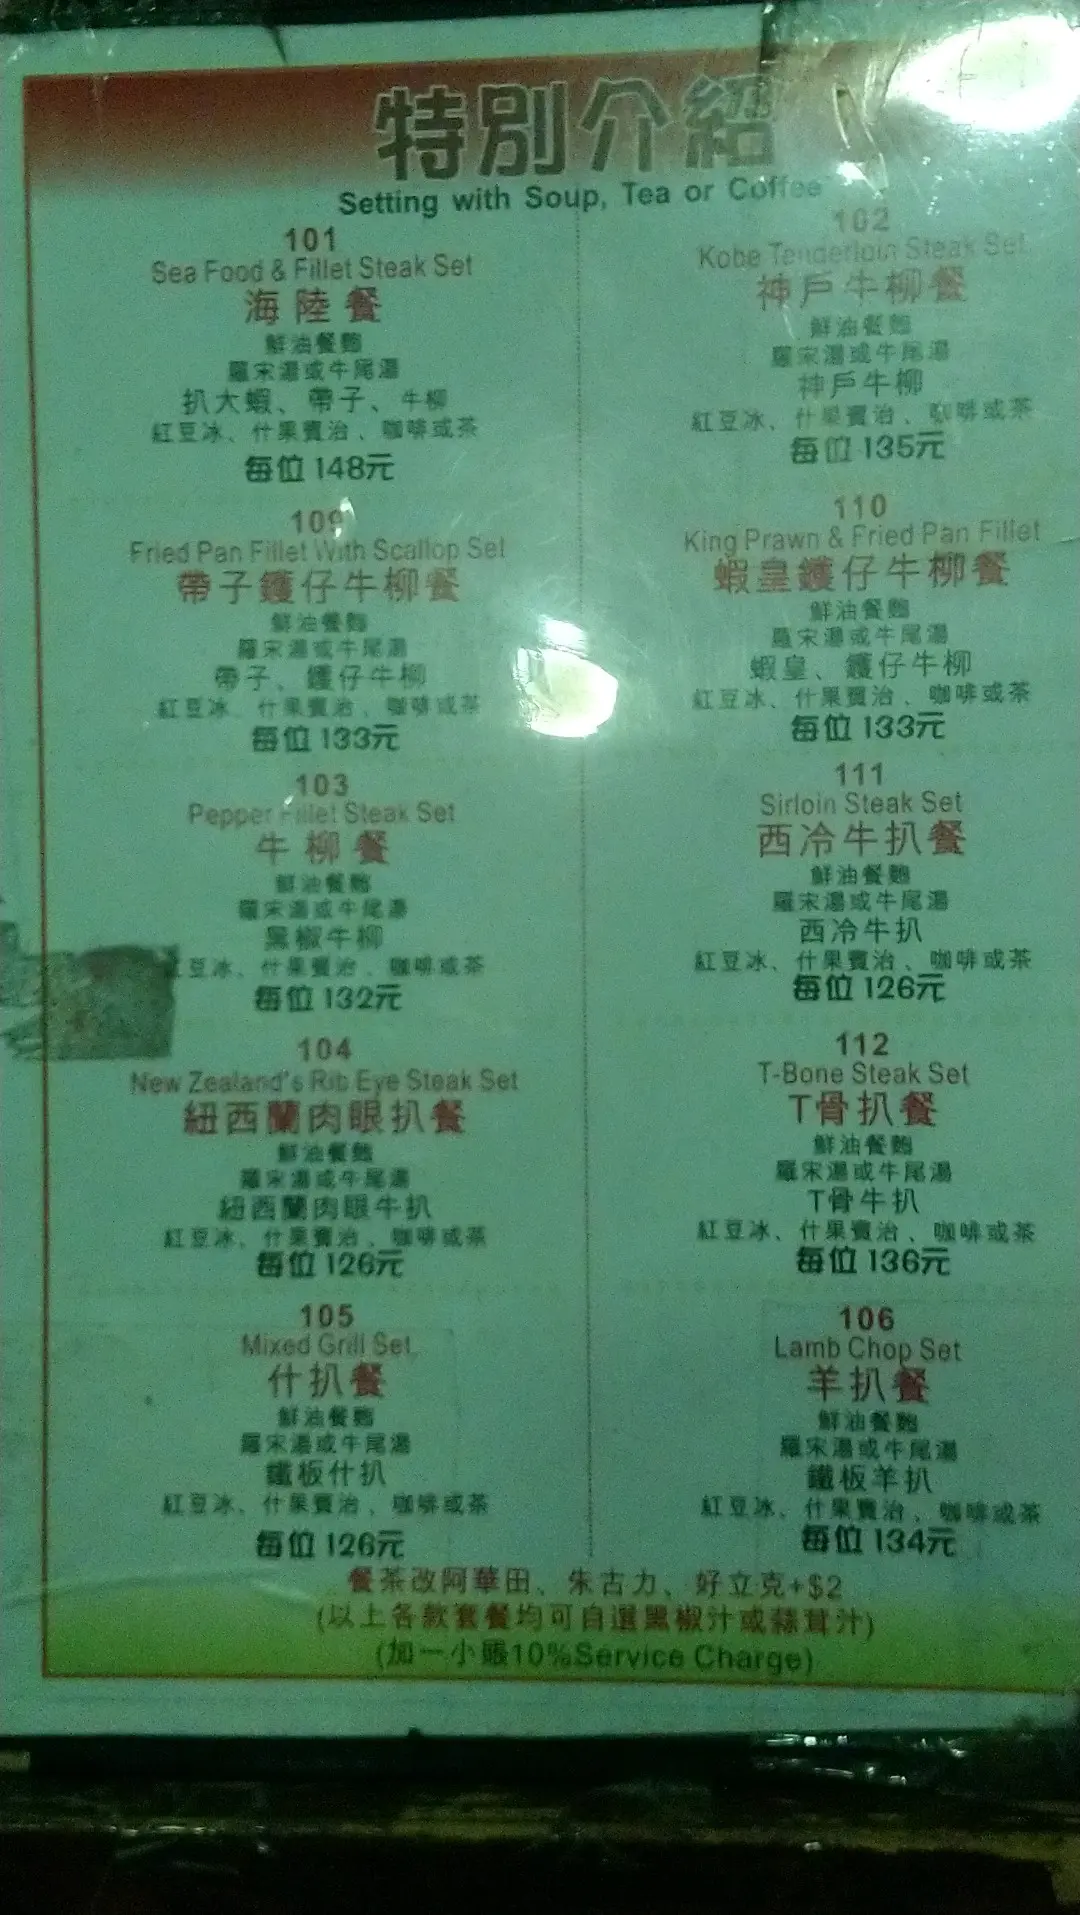 特別介紹
Setting with Soup, Tea or Coffee
101
Sea Food & Fillet Steak Set
海陸餐
鮮油餐飽
羅宋湯或牛尾湯
扒大蝦、帶子、牛柳
紅豆冰、什果賓治、咖啡或茶
每位148元
102
Kobe Tenderloin Steak Set
神戶牛柳餐
鮮油餐飽
羅宋湯或牛尾湯
神戶牛柳
紅豆冰、什果賓治、咖啡或茶
每位135元
109
Fried Pan Fillet With Scallop Set
帶子鑊仔牛柳餐
鮮油餐飽
羅宋湯或牛尾湯
帶子、鑊仔牛柳
紅豆冰、什果賓治、咖啡或茶
每位133元
110
King Prawn & Fried Pan Fillet
蝦皇鑊仔牛柳餐
鮮油餐飽
羅宋湯或牛尾湯
蝦皇、鑊仔牛柳
紅豆冰、什果賓治、咖啡或茶
每位133元
103
Pepper Fillet Steak Set
牛柳餐
鮮油餐飽
羅宋湯或牛尾湯
黑椒牛柳
紅豆冰、什果賓治、咖啡或茶
每位132元
111
Sirloin Steak Set
西冷牛扒餐
鮮油餐飽
羅宋湯或牛尾湯
西冷牛扒
紅豆冰、什果賓治、咖啡或茶
每位126元
104
New Zealand's Rib Eye Steak Set
紐西蘭肉眼扒餐
鮮油餐飽
羅宋湯或牛尾湯
紐西蘭肉眼牛扒
紅豆冰、什果賓治、咖啡或茶
每位126元
112
T-Bone Steak Set
T骨扒餐
鮮油餐飽
羅宋湯或牛尾湯
T骨牛扒
紅豆冰、什果賓治、咖啡或茶
每位136元
105
Mixed Grill Set
什扒餐
鮮油餐飽
羅宋湯或牛尾湯
鐵板什扒
紅豆冰、什果賓治、咖啡或茶
每位126元
106
Lamb Chop Set
羊扒餐
鮮油餐飽
羅宋湯或牛尾湯
鐵板羊扒
紅豆冰、什果賓治、咖啡或茶
每位134元
餐茶改阿華田、朱古力、好立克+$2
(以上各款套餐均可自選黑椒汁或蒜茸汁)
(加一小賬10%Service Charge)